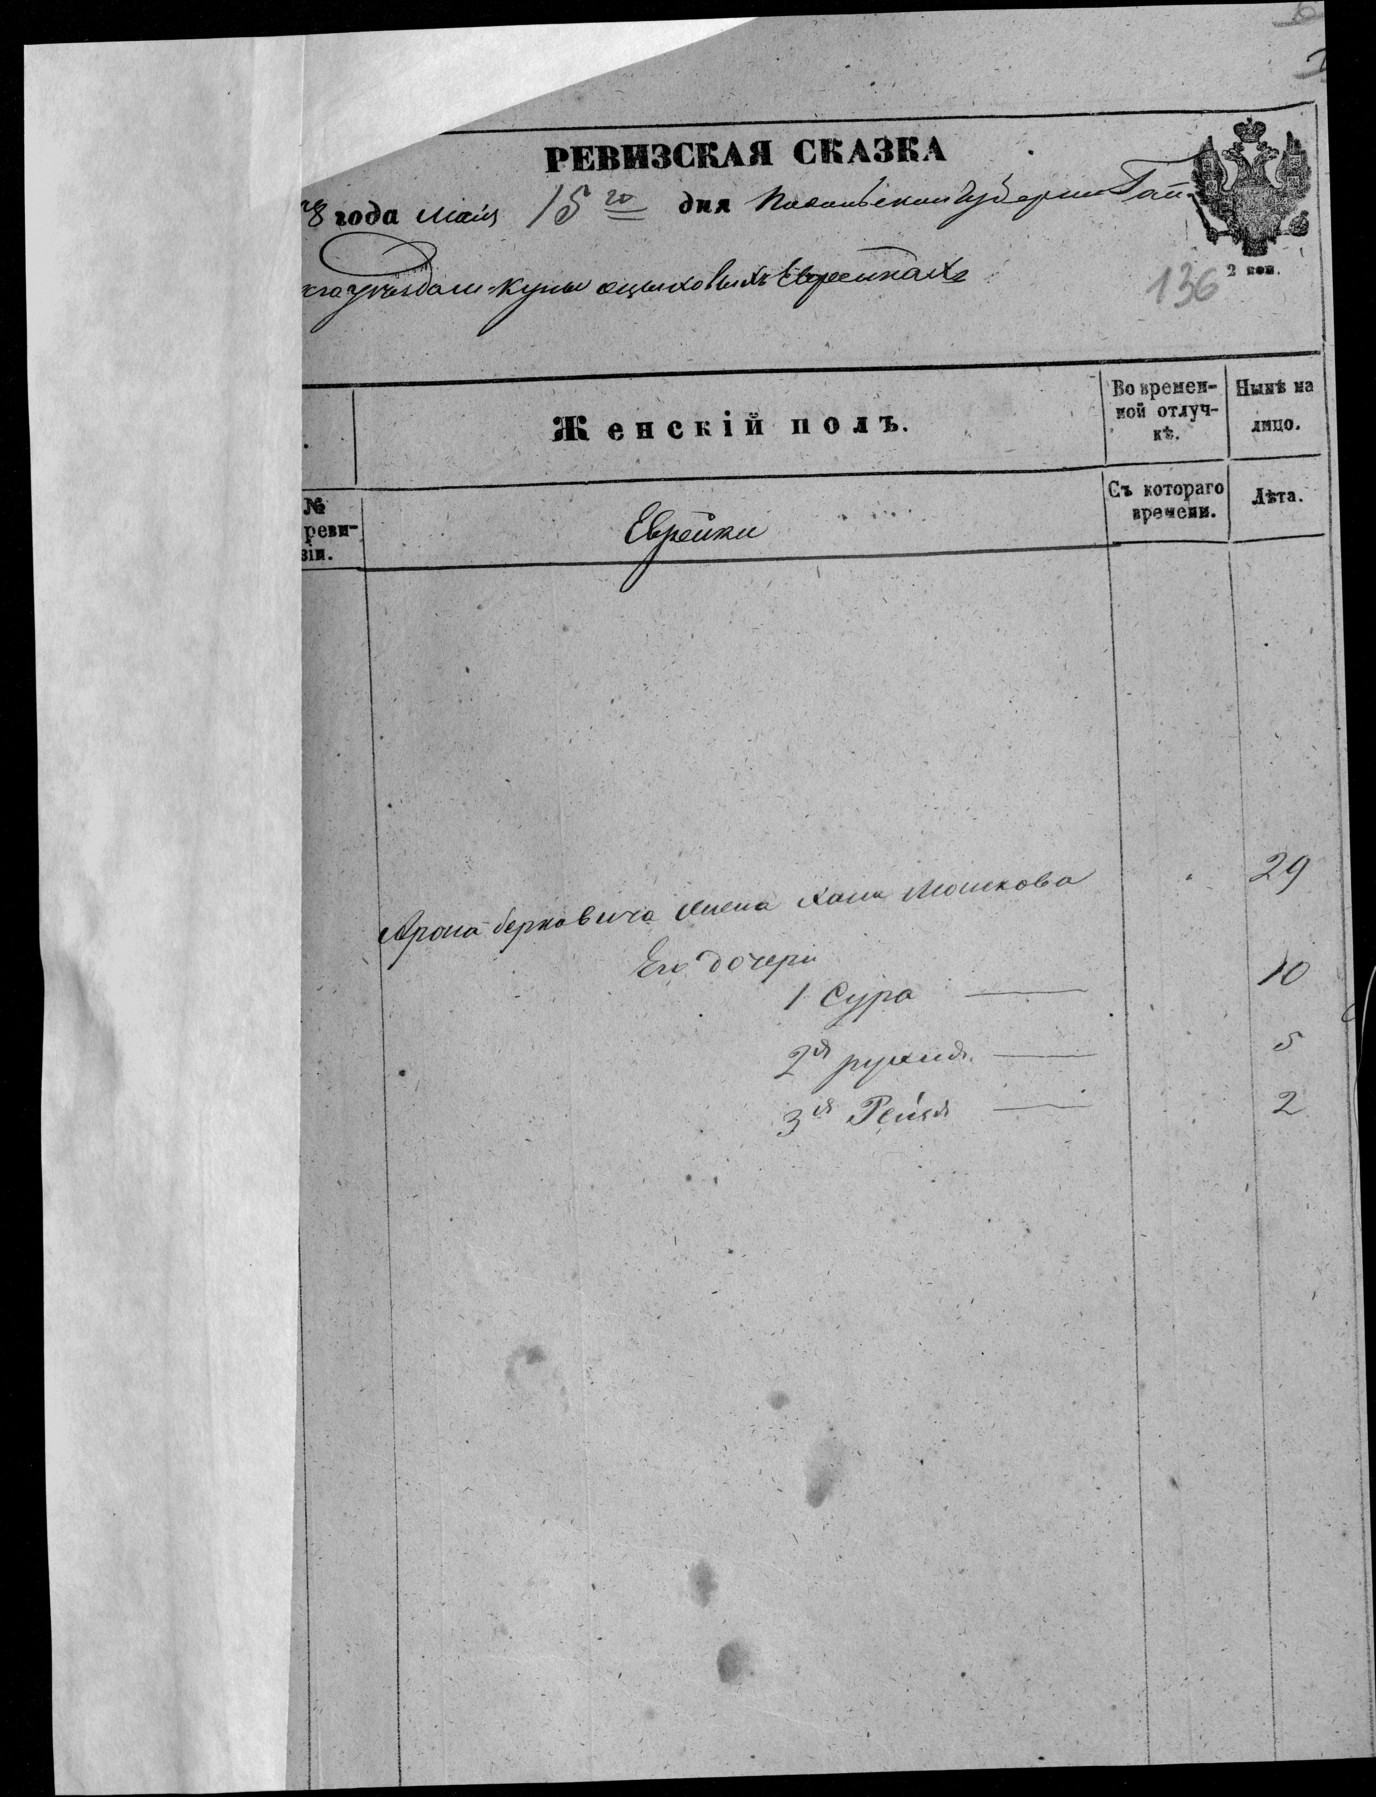 РЕВИЗСКАЯ СКАЗКА
года Мая 15го дня Подольской Губерніи Гай
уезда м. Купы о цеховыхъ Еврейкахъ
136
2 коп.
Женскій полъ.
Во времен-
ной отлуч-
кѣ.
Нынѣ на
лицо.
№
реви-
зіи.
Еврейки
Съ котораго
времени.
Лѣта.
Арона Берковича жена Хая Мошкова 29
Его дочери
1 Сура 10
2я рухля 5
3я Рейзя 2